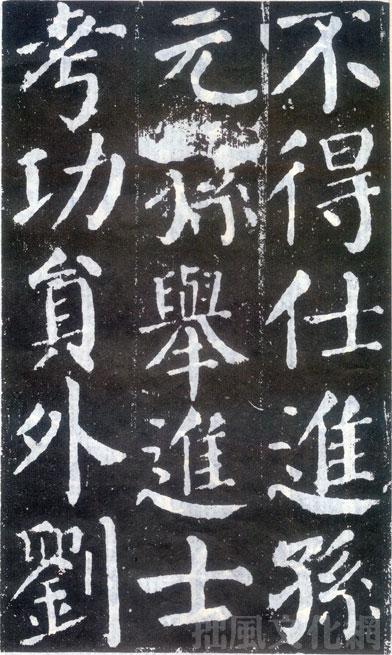 不得仕進孫
元孫舉進士
考功貟外劉
拙風文化網